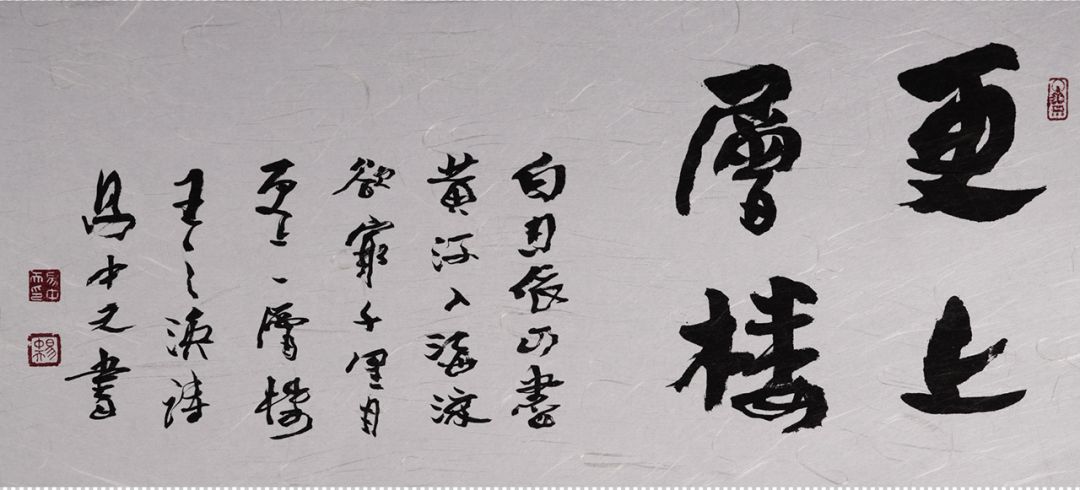 更上
層楼
白日依山盡
黄河入海流
欲窮千里目
更上一層楼
王之渙詩
中元書